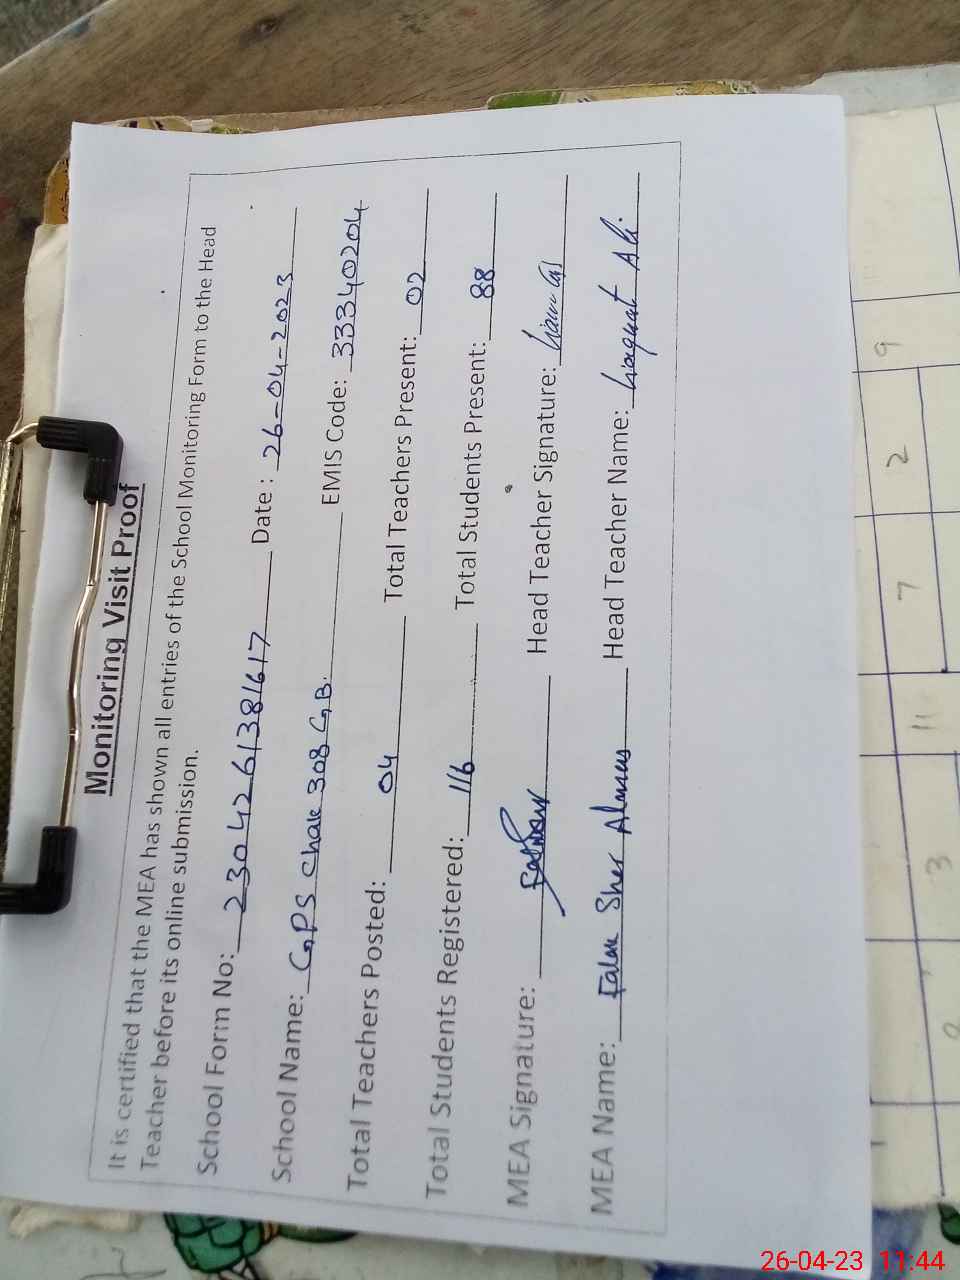 Monitoring Visit Proof
It is certified that the MEA has shown all entries of the School Monitoring Form to the Head
Teacher before its online submission.
School Form No: 230426138​1617 Date : 26-04-2023
School Name: GPS Chak 308 GB. EMIS Code: 33340204
Total Teachers Posted: 04 Total Teachers Present: 02
Total Students Registered: 116 Total Students Present: 88
MEA Signature: Head Teacher Signature:
MEA Name: Falak Sher Head Teacher Name: Liaquat Ali.
9
2
7
11
3
26-04-23 11:44